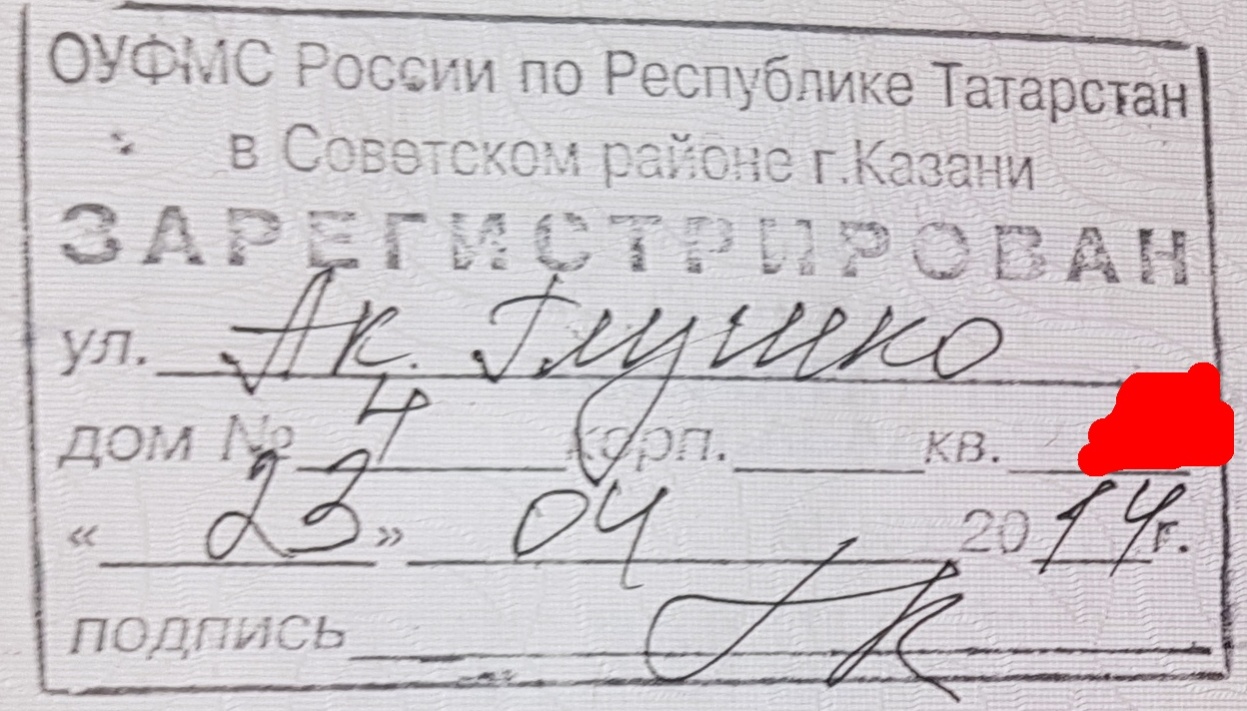 ОУФМС России по Республике Татарстан
в Советском районе г.Казани
ЗАРЕГИСТРИРОВАН
ул. Ак. Глушко
дом № 4 корп. кв.
« 23 » 04 2014г.
подпись